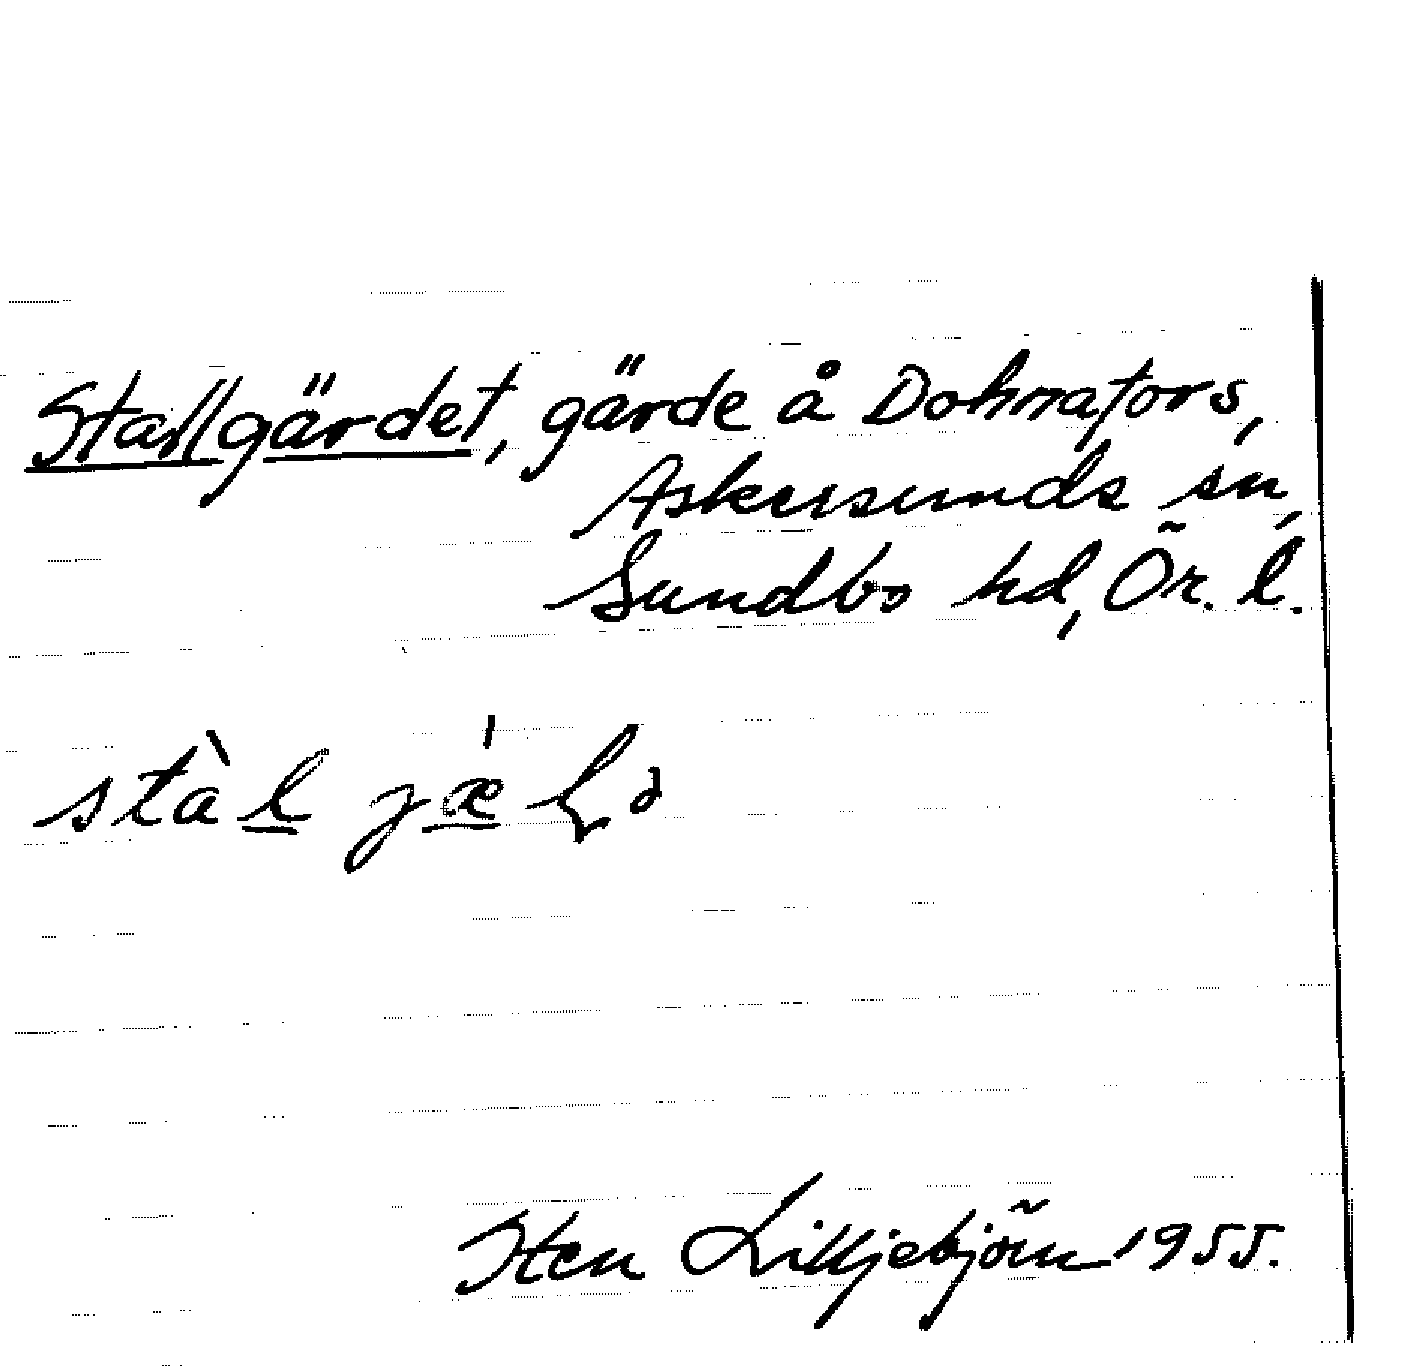 Stallgärdet, gärde å Dohnafors,
Askersunds sn,
Sundbo hd, Ör. l.
Sten Lilljebjörn 1955.